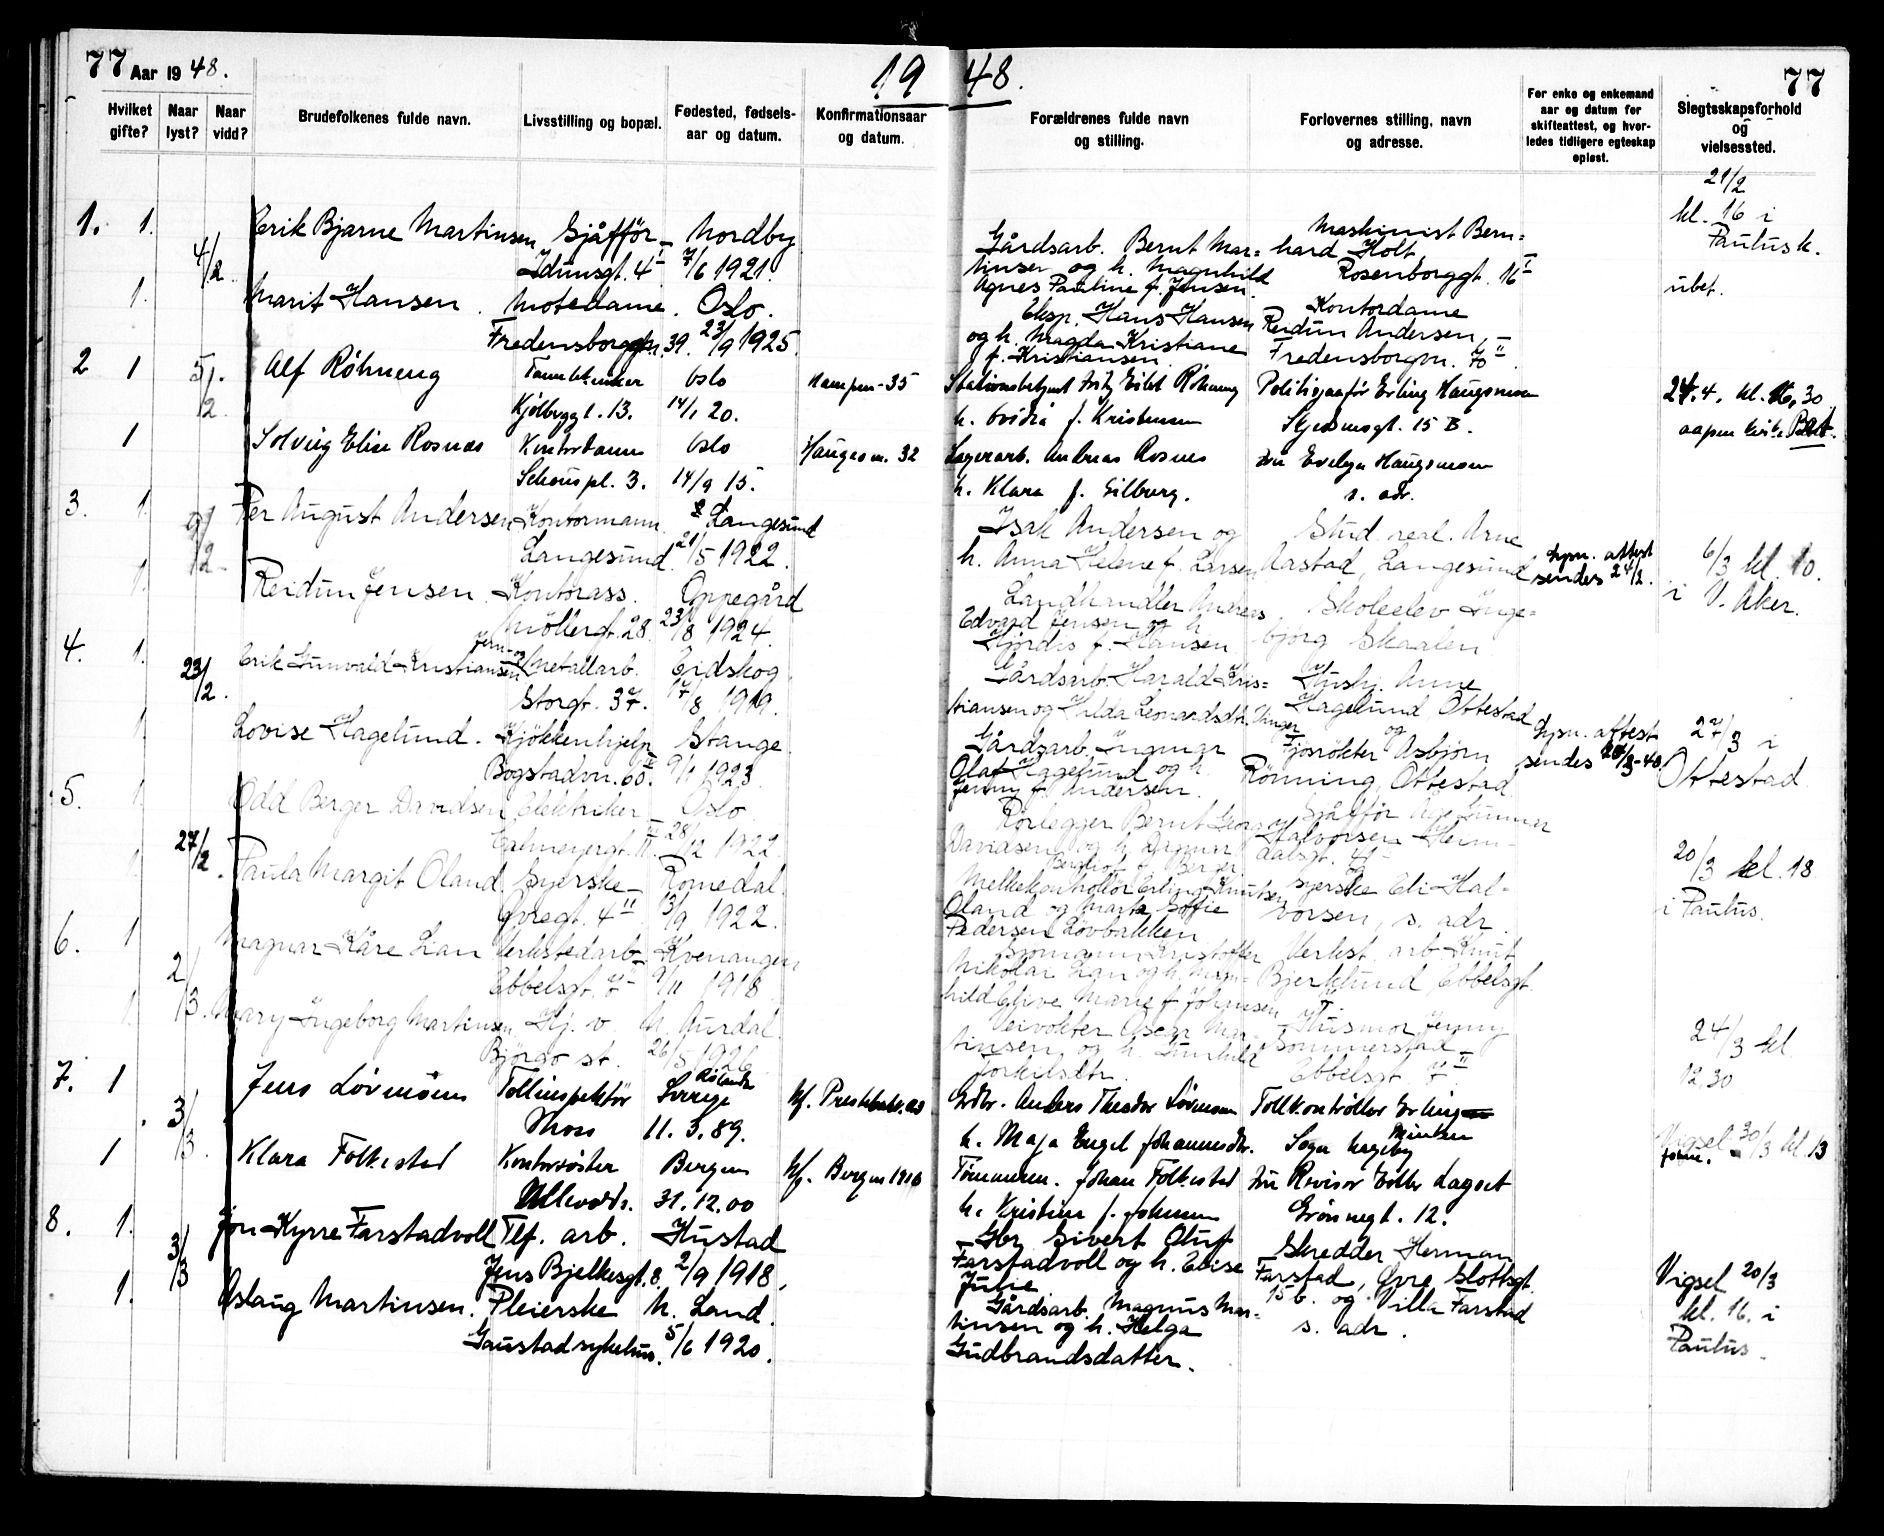 77 Aar 1948.
1948.
77
Hvilket gifte?
Naar lyst?
Naar vidd?
Brudefolkenes fulde navn.
Livsstilling og bopæl.
Fødested, fødsels-
aar og datum.
Konfirmationsaar
og datum.
Forældrenes fulde navn
og stilling.
Forlovernes stilling, navn
og adresse.
For enke og enkemand
aar og datum for
skifteattest, og hvor-
ledes tidligere egteskap
opløst.
Slegtsskapsforhold
og
vielsessted.
1. 1. 4/2 Erik Bjarne Martinsen, Sjåfför
Idunsgt. 4 I
Nordby
7/6 1921.
Gårdsarb. Bernt Mar=
tinsen og h. Magnhild
Agnes Pauline f. Jensen.
Maskinist Bern=
hard Holt,
Rosenborggt. 16 I
21/2
kl. 16 i
Paulus k.
ubet.
1. Marit Hansen. Motedame.
Fredensborgvn. 39.
Oslo.
23/9 1925.
Eksp. Hans Hansen
og h. Magda Kristiane
f. Kristiansen
Kontordame
Reidun Andersen,
Fredensborgvn. 70 II.
2 1 5/2. Alf Röhneng
Kjölbergt. 13.
Oslo
14/1 20.
Kampen - 35
h. f. Kristensen
Politisjaafør Erling Haugsmoen
Skjedsmogt. 15 B.
24.4. kl. 16,30
1 Solveig Elise Rosnes
Kontordame
Schous pl. 3.
Oslo
14/9 15.
Haugesn. 32
Lagerarb. Andreas Rosnes
h. Klara f. Eilburg.
Fru Evelyn Haugsmoen
s. adr.
3. 1. 9/2 Per August Andersen Kontormann
Langesund
Langesund
21/5 1922.
Isak Andersen og
h. Anna Helene f. Larsen
Stud. real. Arne
Aastad, Langesund
lysn. attest
sendes 24/2.
6/3 kl. 10.
i V. Aker.
1. Reidun Jensen. Kontorass.
Möllergt. 28.
Oppegård
23/8 1924.
Landhandler Andreas
Edvard Jensen og h.
Hjördis f. Hansen
Skoleelev Inge=
björg Skaalen
4. 1. 23/2. Erik Gunvald Kristiansen. Jern- og
metallarb.
Storgt. 37.
Eidskog.
17/8 1919.
Gårdsarb. Harald Kris=
tiansen og Hilda Leonardsdtr. Unger
Hushj. Anne
Hagelund, Ottestad
og
1. Lovise Hagelund. Kjökkenhjelp
Bogstadvn. 60 IV.
Stange.
9/1 1923.
Gårdsarb. Ingmar
Olaf Hagelund og h.
Jenny f. Andersen.
Fjosrökter Asbjörn
Rönning, Ottestad.
lysn. attest
sendes
27/3 i
Ottestad
5. 1 27/2. Odd Berger Davidsen, Elektriker
Calmeyergt. 11.
Oslo
28/12 1922.
Rørlegger Bernt Georg
Davidsen og h. Dagmar
Bergliot f. Berger
Sjåfför Åge Gunnar
Halvorsen, Heim=
dalsgt.
20/3 kl. 18
i Paulus.
1 Paula Margit Oland. Syerske
Øvregt. 4 II
Romedal.
13/9 1922.
Melkekontrollör Erling Knutsen
Oland og Marta Sofie
Pedersen Lövbakken
syerske Eli Hal-
vorsen, s. adr.
6. 1 2/3. Magnar Kåre Lian Verkstedarb.
Ebbelsgt. 7 II
Kvenangen
9/11 1918
Sjömann Kristoffer
Nikolai Lian og h. Magn=
hild Elvire Marie f. Johansen
Verkst. arb. Knut
Bjerklund, Ebbelsgt.
1. Mary Ingeborg Martinsen, Hj. v.
Björgo st.
N. Aurdal.
26/5 1926
Veivokter Oscar Mar-
tinsen og h. Gunhild
Torkilsdtr.
Husmor Jenny
Sommerstad
Ebbelsgt. 7 II
24/3 kl
12.30
7. 1 3/3. Jens Løvmoen Tollinspektör
Moss
Sverige
11. 3. 89.
Gbr. Anders Theodor Løvmoen
h. Maja Engel Johannesdtr.
Tollkontrollør Erling
Sogn hageby
Vigsel 30/3 kl. 13
1 Klara Folkestad Kontorsöster
Bergen
31. 12. 00
Kf. Bergen 1916
Tømmerm. Johan Folkestad
h. Kristine f. Johnsen
Fru Revisor Esther Lagset
Grönnegt. 12.
8. 1. 3/3 Jon Kyrre Farstadvoll Tlf. arb.
Jens Bjelkesgt. 8,
Hustad
2/9 1918,
Gbr. Sivert Oluf
Farstadvoll og h. Elise
Julie
Skredder Herman
Farstad, Øvre Slottsgt.
15 b. og Villa Farstad
s. adr.
Vigsel 20/3
kl. 16. i
Paulus.
1. Aslaug Martinsen. Pleierske
Gaustad sykehus.
N. Land.
5/6 1920.
Gårdsarb. Magnus Mar-
tinsen og h. Helga
Gudbrandsdatter.